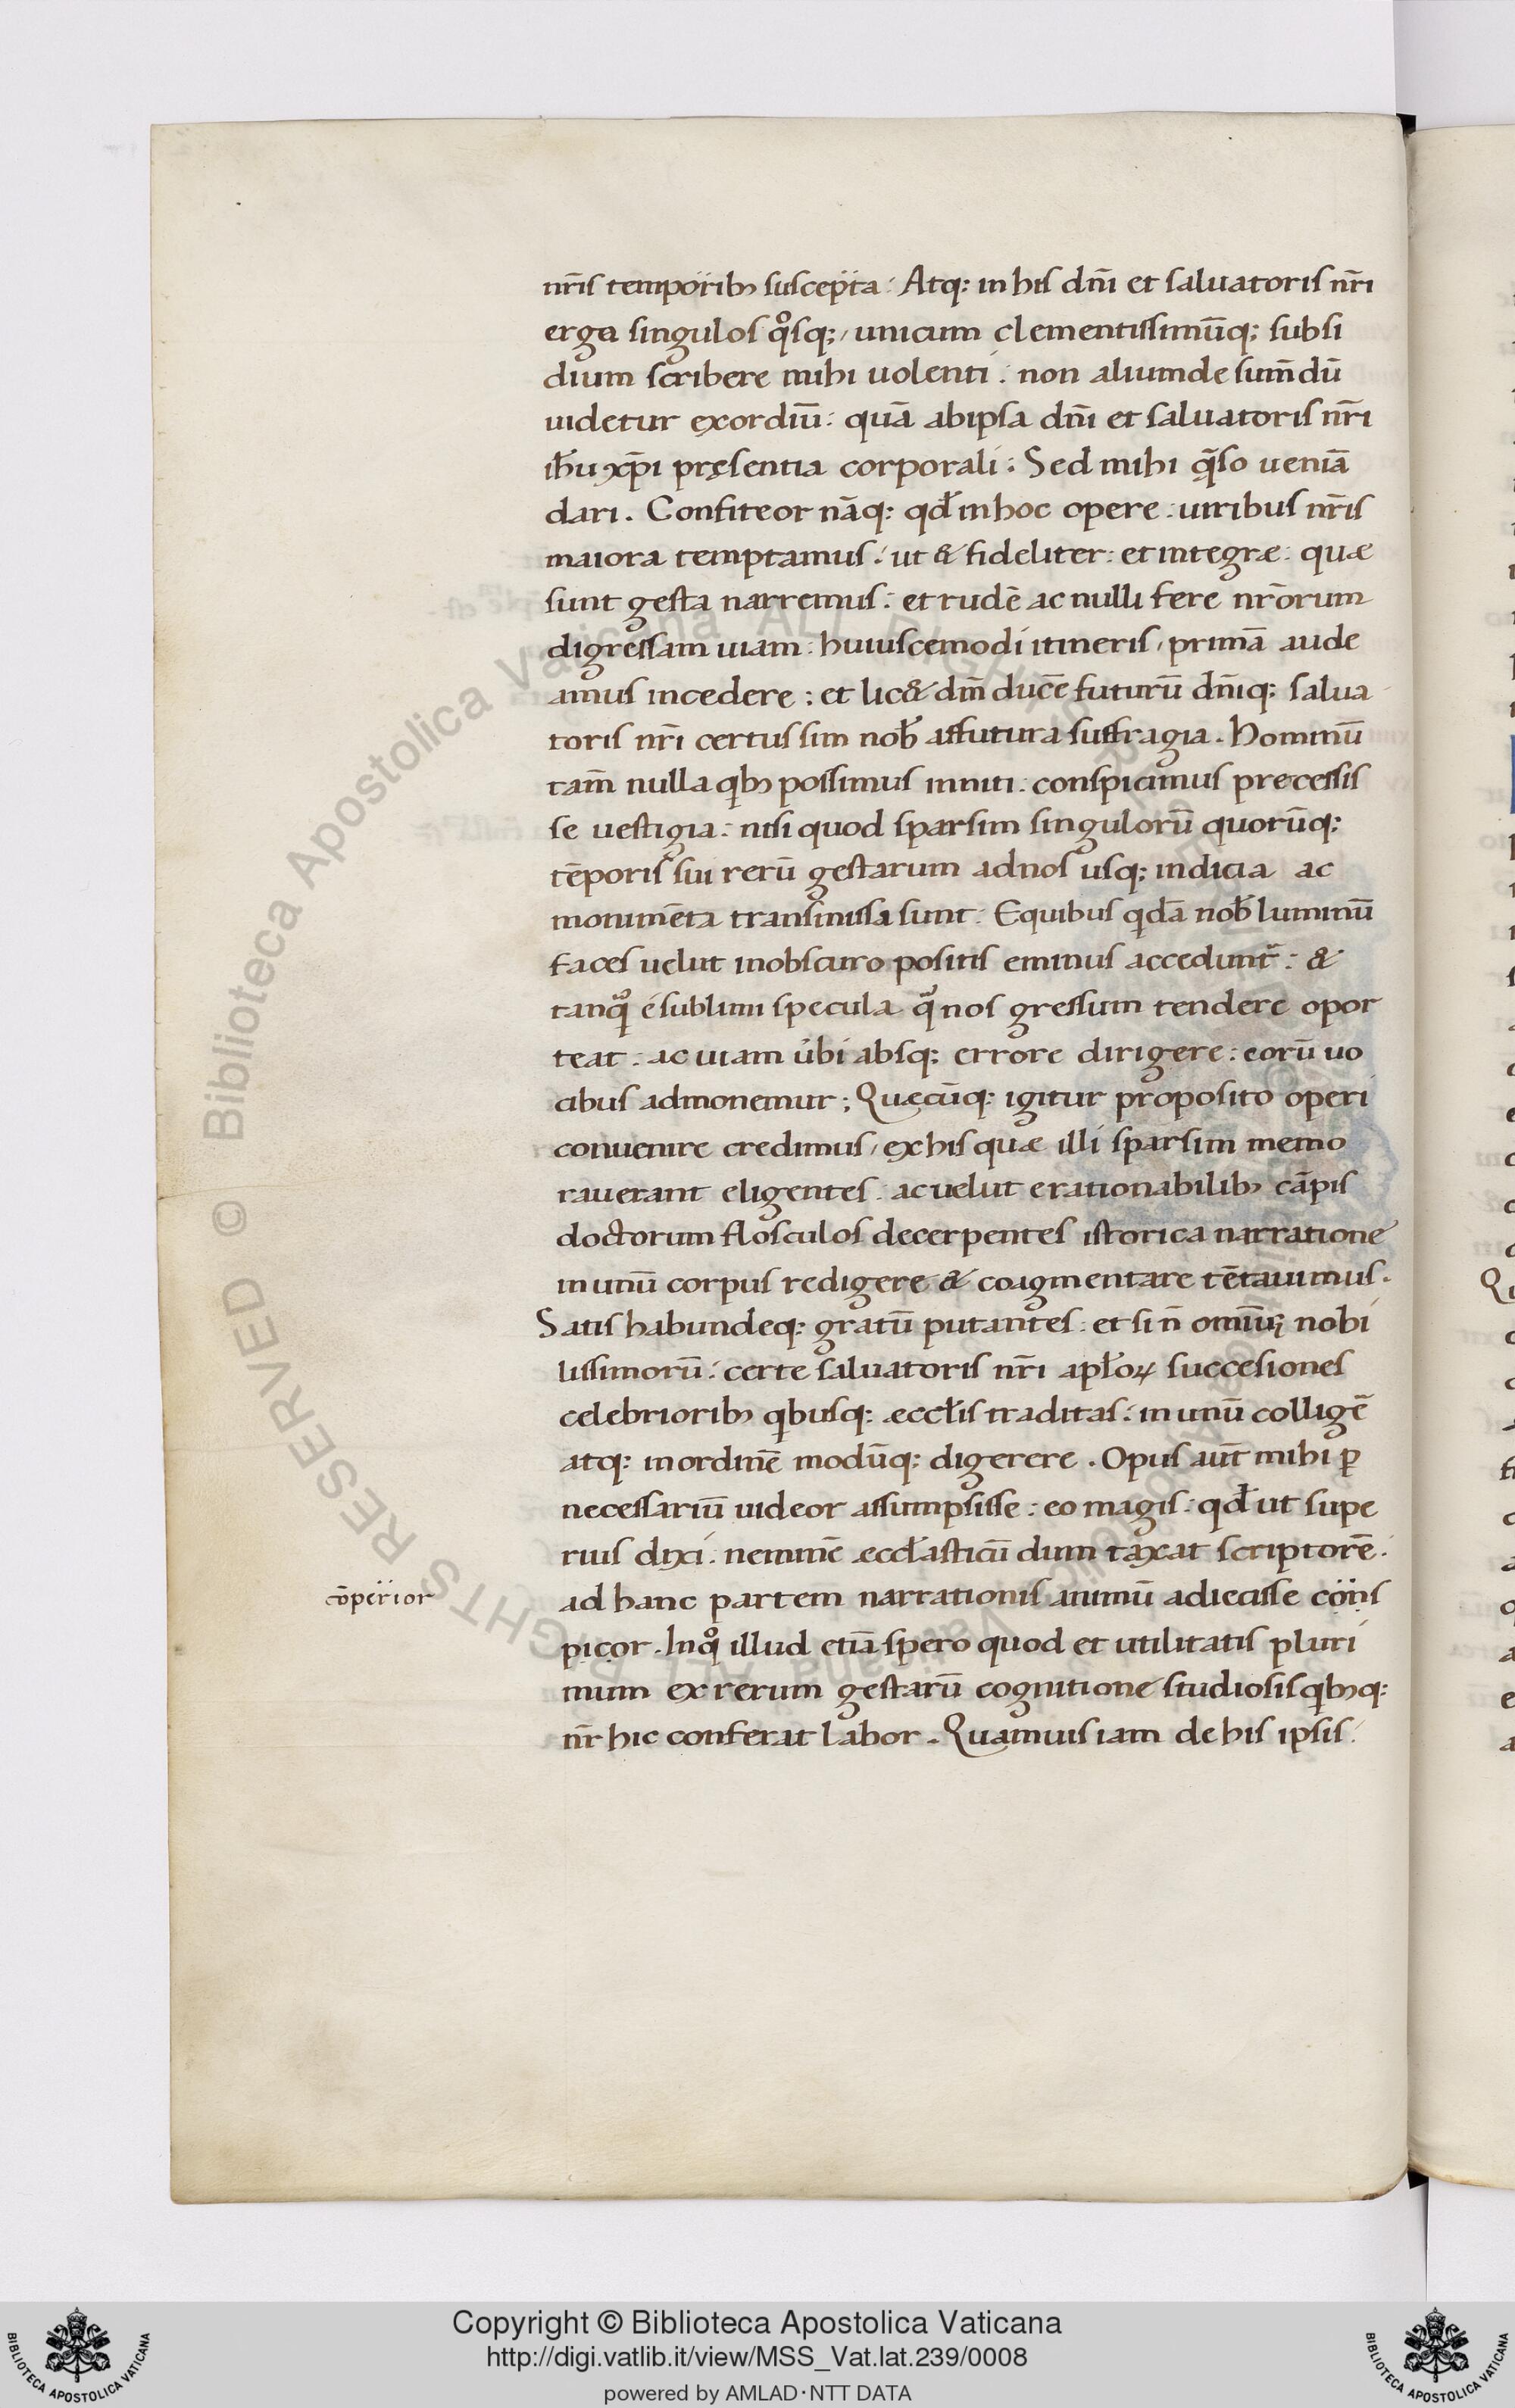 nr̄is temporib; suscepta: Atq: in his dn̄i et saluatoris nr̄i
erga singulos qͦsq;, unicum clementissimūq; subsi
dium scribere mihi uolenti. non aliumde sum̄dū
uidetur exordiū: quā abipsa dn̄i et saluatoris nr̄i
ih̄u xp̄i pręsentia corporali: Sed mihi q̄so ueniā
dari. Confiteor nāq: qd̄ inhoc opere. uiribus nr̄is
maiora temptamus. ut & fideliter: et integræ: quæ
sunt gesta narremus: et rudē ac nulli fere nr̄orum
digressam uiam: huiuscemodi itineris, primā aude
amus incedere: et lic& dm̄ ducē futurū dn̄iq; salua
toris nr̄i certus sim nob̄ affutura suffragia. Hominū
tam̄ nulla qb; possimus inniti. conspicimus precessis
se uestigia: nisi quod sparsim singulorū quorūq:
tēporis sui rerū gestarum adnos usq; indicia ac
monumēta transmissa sunt: Equibus qdā nob̄ luminū
faces uelut inobscuro positis eminus accedunt̄: &
tanqͣ̄ e sublimi specula qͣ nos gressum tendere opor
teat: ac uiam ubi absq; errore dirigere: eorū uo
cibus admonemur; Quęcūq: igitur proposito operi
conuenire credimus, ex his quæ illi sparsim memo
rauerant eligentes. ac uelut e rationabilib; cāpis
doctorum flosculos decerpentes istorica narratione
in unū corpus redigere & coagmentare tētauimus.
Satis habundeq: gratū putantes: et si n̄ omīuꝝ nobi
lissimorū: certe saluatoris nr̄i apl̄oꝝ succesiones
celebriorib; qbusq: eccl̄is traditas: in unū colligē
atq: in ordinē modūq: digerere. Opus aūt mihi ꝑ
necessariū uideor assumpsisse: eo magis: qd̄ ut supe
rius dixi: neminē eccl̄asticū dum taxat scriptorē.
cōperior
ad hanc partem narrationis animū adiecisse cons
picor. Inqͦ illud etiā spero quod et utilitatis pluri
mum ex rerum gestarū cognitione studiosis qb;q:
nr̄ hic conferat labor. Quamuis iam de his ipsis.
© Biblioteca Apostolica Vaticana ALL RIGHTS RESERVED
Copyright © Biblioteca Apostolica Vaticana
http://digi.vatlib.it/view/MSS_Vat.lat.239/0008
powered by AMLAD·NTT DATA
BIBLIOTECA APOSTOLICA VATICANA
BIBLIOTECA APOSTOLICA VATICANA